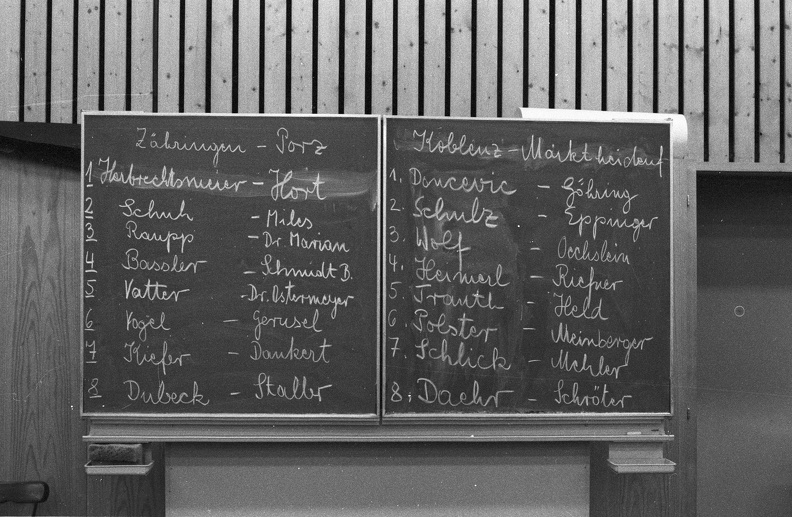 Zähringen - Porz
1 Herbrechtsmeier - Hort
2 Schuh - Miles
3 Raupp - Dr. Marian
4 Bassler - Schmidt B.
5 Vatter - Dr. Ostermeyer
6 Vogel - Gerusel
7 Kiefer - Dankert
8 Dubeck - Staller
Koblenz - Marktheidenf
1. Doncevic - Göhring
2. Schulz - Eppinger
3. Wolf - Oechslein
4. Heimerl - Riefner
5. Trauth - Held
6. Polster - Meinberger
7. Schlick - Mehler
8. Daehr - Schröter